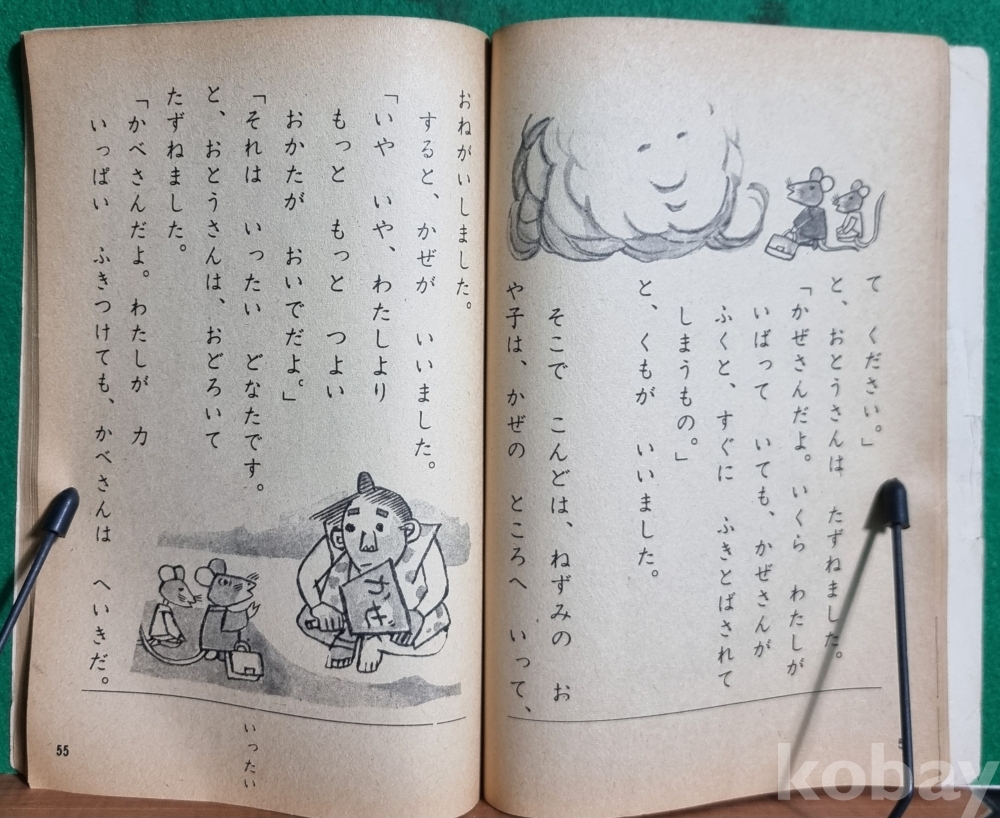 て ください。」
と、おとうさんは たずねました。
「かぜさんだよ。いくら わたしが
いばって いても、かぜさんが
ふくと、すぐに ふきとばされて
しまうもの。」
と、くもが いいました。
そこで こんどは、ねずみの お
や子は、かぜの ところへ いって、
おねがいしました。
すると、かぜが いいました。
「いや いや、わたしより
もっと もっと つよい
おかたが おいでだよ。」
「それは いったい どなたです。
と、おとうさんは、おどろいて
たずねました。
「かべさんだよ。わたしが 力
いっぱい ふきつけても、かべさんは へいきだ。
かぜ
いったい
55
kobay